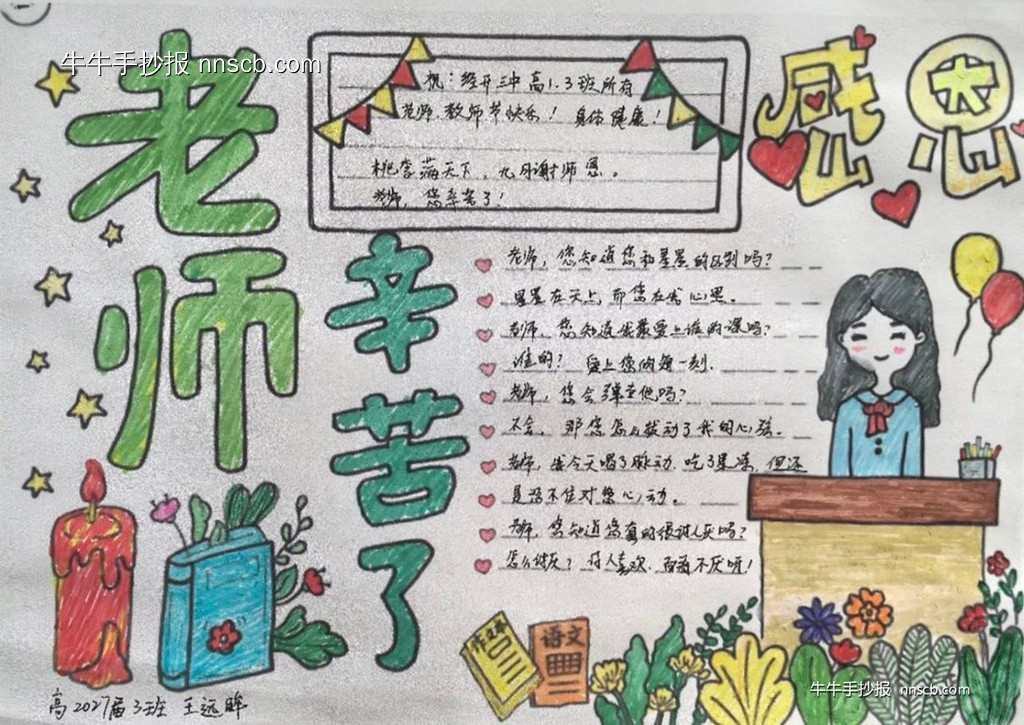 牛牛手抄报 nnscb.com
老师
辛苦了
感恩
祝:经开三中高1.3班所有
老师.教师节快乐!身体健康!
桃李满天下,九月谢师恩。
老师,您辛苦了!
老师,您知道您和星星的区别吗?
星星在天上,而您在我心里。
老师,您知道我最爱上谁的课吗?
谁的?爱上您的每一刻.
老师,您会弹吉他吗?
不会,那您怎么拨动了我的心弦。
老师,我今天喝了脉动,吃了果冻,但还
是忍不住对您心动。
老师,您知道您真的很讨人厌吗?
怎么讨厌?讨人喜欢,百看不厌呀!
语文
高2027届3班 王远晔
牛牛手抄报 nnscb.com